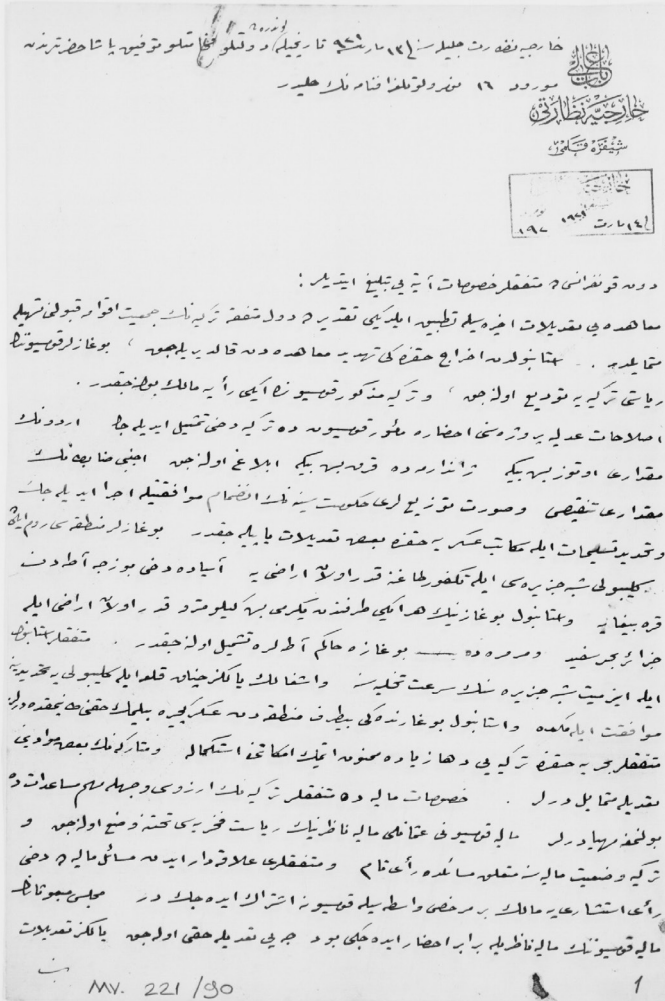 خارجیه نظارت جلیله سنه ١٣ مارت ٩٢١ تاریخیله لوندره ده دولتلو فخامتلو توفیق پاشا حضرتلرندن
مورود ١٦ نومرولو تلغرافنامه نك حلیدر
باب عالی
خارجیه نظارتی
شیفره قلمی
خارجیه
١٤ مارت ١٩٢١
دون قونفرانس ده متفقلر خصوصات آتیه یی تبلیغ ایتدیلر :
معاهده یی تعدیلات اخیره سیله تطبیق ایلدیکی تقدیرده دول متفقه ترکیه نك جمعیت اقوامه قبولنی تسهیله
متمایلدر . استانبولدن اخراج حقنده کی تهدید معاهده دن قالدیریله جق ، بوغازلر قومیسیوننك
ریاستی ترکیه یه تودیع اولنه جق ، و ترکیه مذکور قومیسیونده ایکی رأیه مالك بولنه جقدر .
اصلاحات عدلیه پروژه سنی احضاره مأمور قومیسیون ده ترکیه دخی تمثیل ایدیله جك اردونك
مقداری اوتوز بیس بیكه ژاندارمه ده قرق بیس بیكه ابلاغ اولنه جق اجنبی ضابطانك
مقداری تنقیص و صورت توزیعلری حکومت سنیه نك انضمام موافقتیله اجرا ایدیله جك
و تحدید تسلیحات ایله مکاتب عسکریه حقنده بعض تعدیلات یاپیله جقدر بوغازلر منطقه سی روم ایلیده
کلیبولی شبه جزیره سی ایله تکفور طاغنه قدر اولان اراضی یه آسیاده دخی بوزجه آطه دن
قره بیغایه و استانبول بوغازینك هر ایکی طرفندن یکرمی بش کیلومترو قدر اولان اراضی ایله
جزائر بحر سفید و مرمره ده بوغازه حاکم آطه لره تشمیل اولنه جقدر . متفقلر استانبول
ایله ازمیت شبه جزیره سنك سرعت تخلیه سنه و اشغالك یالکز چناق قلعه ایله کلیبولی یه تحدیدینه
موافقت ایله مکده و استانبول بوغازنده کی بیطرف منطقه دن عسکر کچیره بیلمك حقنی طانیمقده درلر
متفقلر بحریه حقنده ترکیه یی دها زیاده ممنون ایتمك امکاننی استکماله و متارکه نك بعض موادینی
تعدیله متمایلدرلر . خصوصات مالیه ده متفقلر ترکیه نك آرزوسی وجهله مهم مساعداتده
بولنمغه مهیادرلر مالیه قومیسیونی عثمانلی مالیه ناظرینك ریاست فخریه سی تحتنه وضع اولنه جق و
ترکیه وضعیت مالیه سنه متعلق مسائلده رأی تام و متفقلری علاقه دار ایدن مسائل مالیه ده دخی
رأی استشاری یه مالك بر مرخص واسطه سیله قومیسیونه اشتراك ایده جکدر مجلس مبعوثانك
مالیه قومیسیوننك مالیه ناظریله برابر احضار ایده جکی بودجه یی تعدیله حقی اوله جق یالکز تعدیلات
MV. 221/90
1